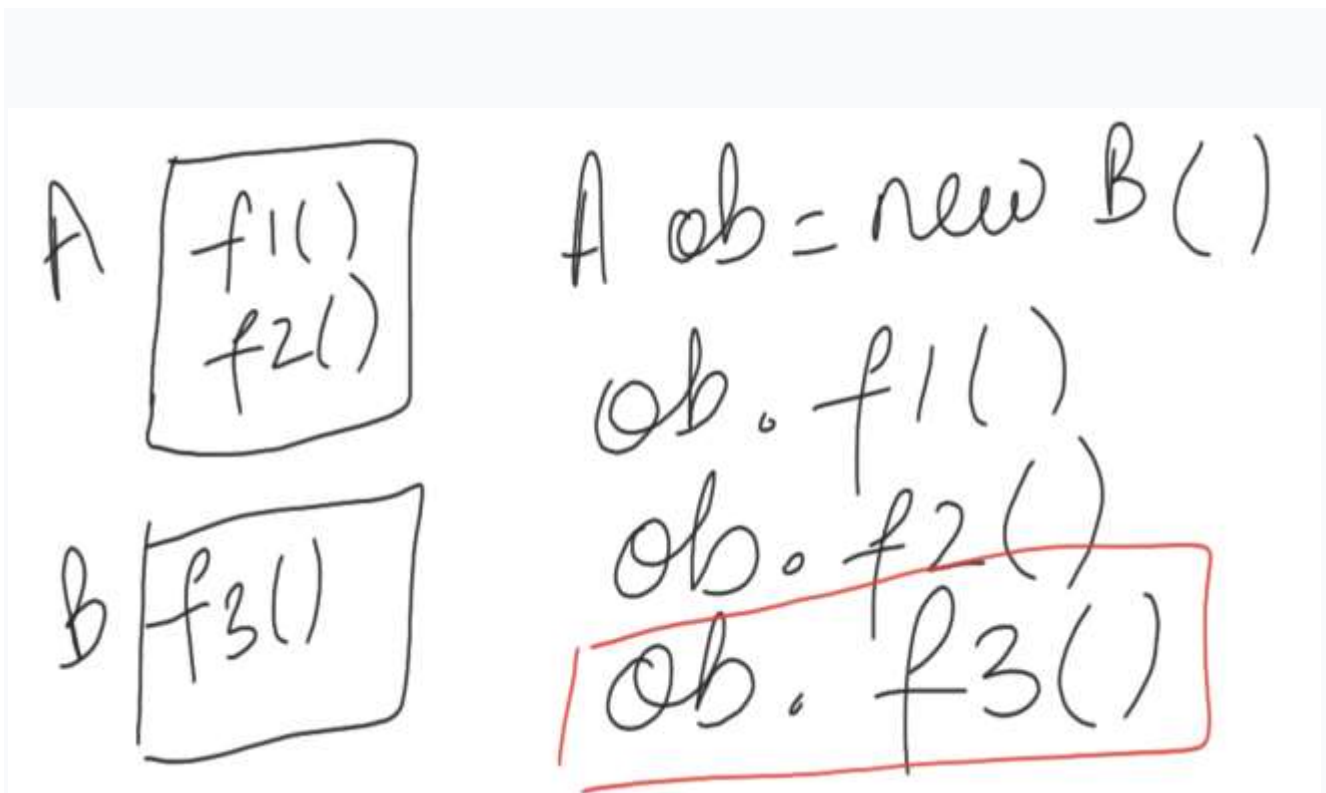 A
f1()
f2()
B
f3()
A ob = new B()
ob. f1()
ob. f2()
ob. f3()